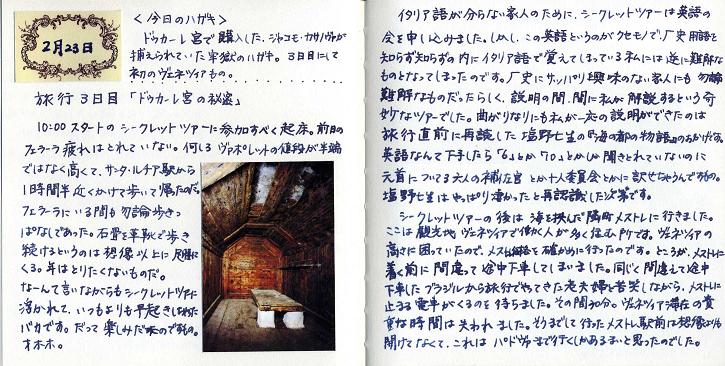 2月23日
<今日のハガキ>
ドゥカーレ宮で購入した、ジャコモ・カサノヴァが
捕えられていた牢獄のハガキ。3日目にして
初のヴェネツィアもの。
旅行3日目「ドゥカーレ宮の秘密」
10:00スタートのシークレットツアーに参加すべく起床。前日の
フェラーラ疲れはとれていない。何しろヴァポレットの値段が半端
ではなく高くて、サンタ・ルチア駅から
1時間半近くかけて歩いて帰ったのだ。
フェラーラにいる間も勿論歩きっ
ぱなしであった。石畳を革靴で歩き
続けるというのは想像以上に足腰に
くる。年はとりたくないものだ。
なーんて言いながらもシークレットツアーに
浮かれて、いつもよりも早起きしちゃった
バカです。だって楽しみだったのですもの。
オホホ。
イタリア語が分らない家人のために、シークレットツアーは英語の
会を申し込みました。しかし、この英語というのがクセモノで、歴史用語を
知らず知らずの内にイタリア語で覚えてしまっている私には逆に難解な
ものとなってしまったのです。歴史にサッパリ興味のない家人にも勿論
難解なものだったらしく、説明の間、間に私が解説するという奇
妙なツアーでした。曲がりなりにも私が一応の説明ができたのは
旅行直前に再読した塩野七生の『海の都の物語』のおかげです。
英語なんて下手したら「6」とか「70」とかしか聞きとれていないのに
元首についてる六人の補佐官とか十人委員会とかに訳せちゃうんですもの。
塩野七生はやっぱり凄かったと再認識した次第です。
シークレットツアーの後は海を挟んだ隣町メストレに行きました。
ここは観光地ヴェネツィアで働く人が多く住む所です。ヴェネツィアの
高さに困っていたので、メストレ価格を確かめに行ったのです。ところが、メストレに
着く前に間違って途中下車してしまいました。同じく間違えて途中
下車したブラジルから旅行でやってきた老夫婦と苦笑しながら、メストレに
止まる電車がくるのを待ちました。その間30分。ヴェネツィア滞在の貴
重な時間は失われました。そうまでして行ったメストレ駅前は想像よりも
開けてなくて、これはパドヴァまで行くしかあるまいと思ったのでした。